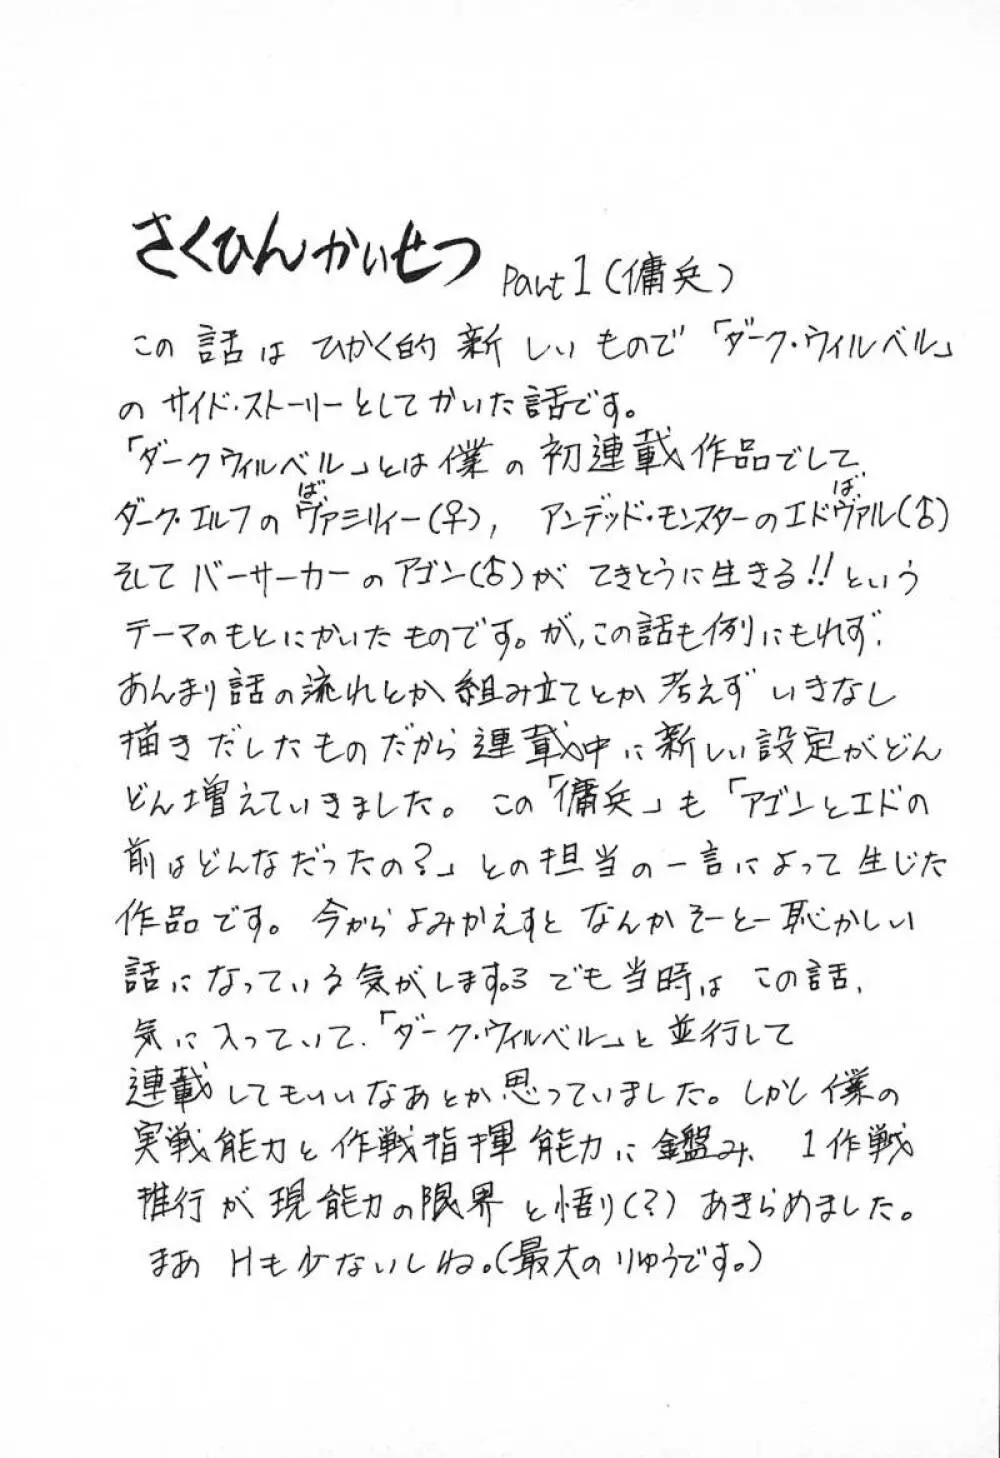 さくひんかいせつ Part1(傭兵)
この話はひかく的新しいもので「ダーク・ウィルベル」
のサイド・ストーリーとしてかいた話です。
「ダークウィルベル」とは僕の初連載作品でして
ば ば
ダーク・エルフのヴァミリィー(♀), アンデッド・モンスターのエドヴァル(♂)
そしてバーサーカーのアゴン(♂)が てきとうに生きる!!という
テーマのもとにかいたものです。が、この話も例にもれず、
あんまり話の流れとか組み立てとか考えずいきなし
描きだしたものだから連載中に新しい設定がどん
どん増えていきました。この「傭兵」も「アゴンとエドの
前はどんなだったの?」との担当の一言によって生じた
作品です。今からよみかえすとなんかそーとー恥かしい
話になっている気がします。3 でも当時はこの話、
気に入っていて、「ダーク・ウィルベル」と並行して
連載してもいいなあとか思っていました。しかし僕の
実戦能力と作戦指揮能力に鑑み、1作戦
推行が現能力の限界と悟り(?)あきらめました。
まあHも少ないしね。(最大のりゅうです。)